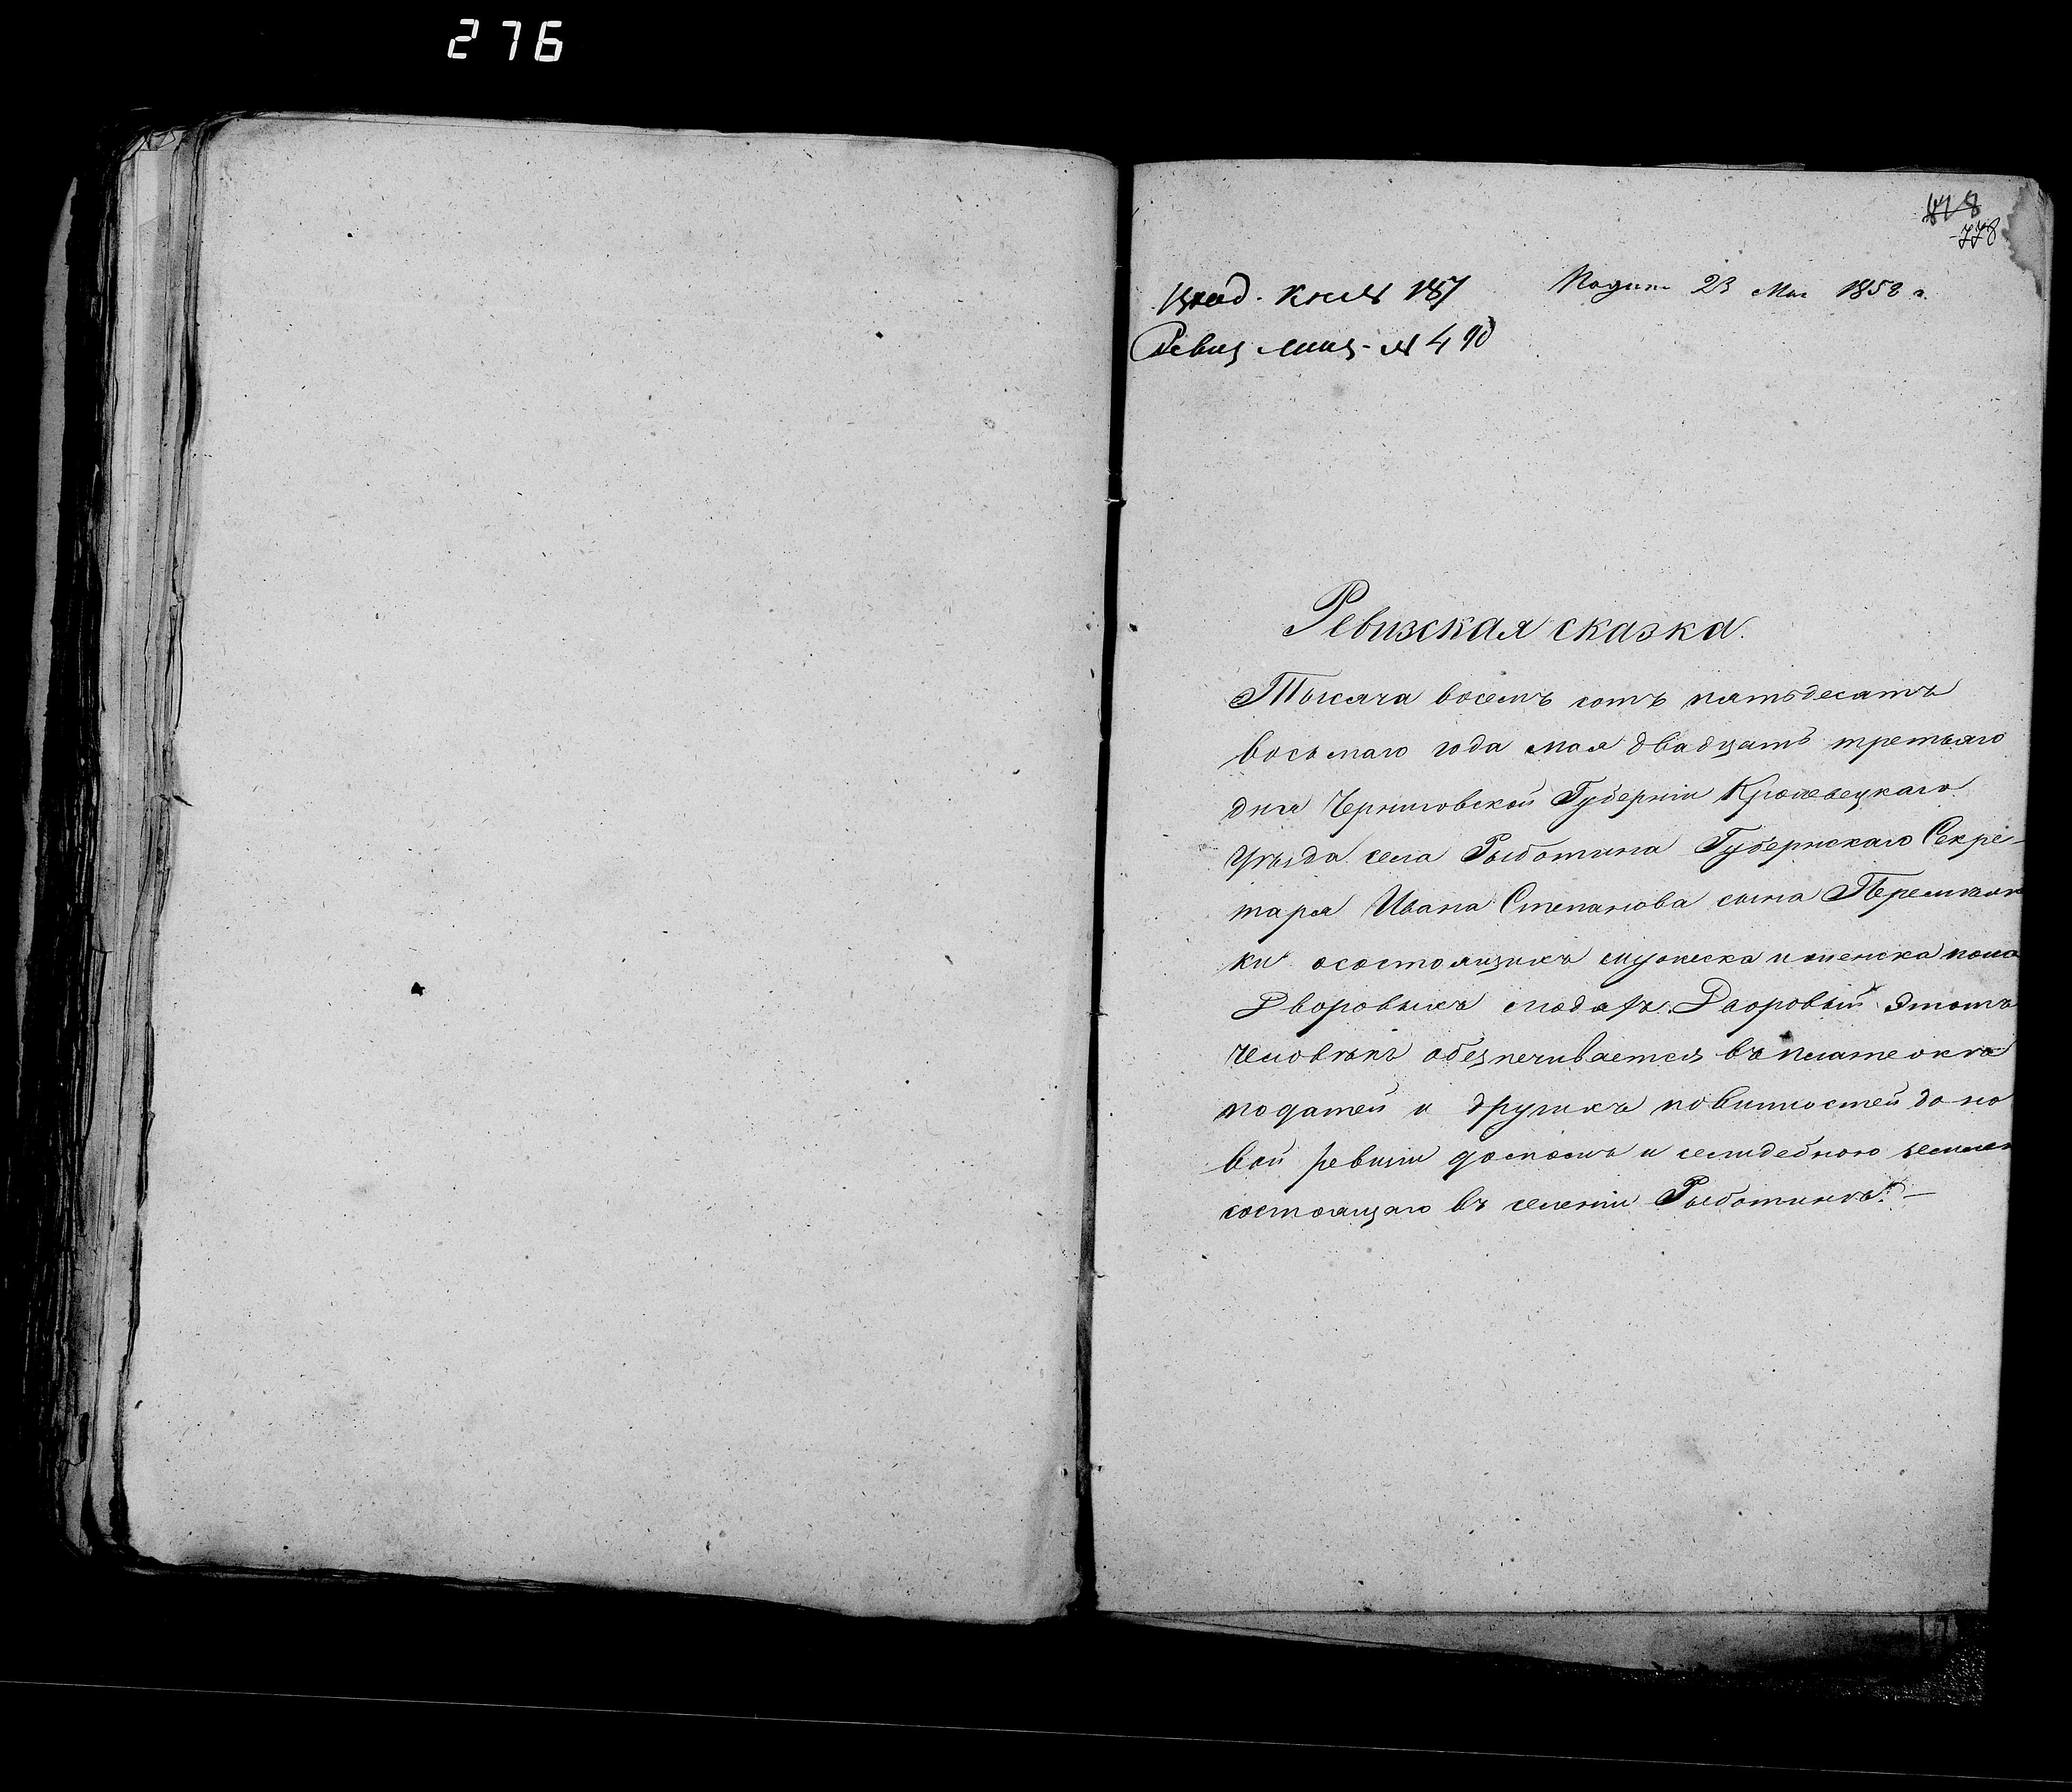 276
778
Подан 23 Мая 1858 г.
187
Ревиз № 490
Ревизская сказка.
Тысяча восемъ сотъ пятьдесятъ
восьмаго года мая двадцать третьяго
дня Черниговской Губерніи Кролевецкаго
Уѣзда села Рыботина Губернскаго Секре-
таря Ивана Степанова сына
ки осостоящихъ мужеска и женска пола
Дворовыхъ людяхъ. Дворовый этотъ
человѣкъ обезпечивается въ платеж
податей и другихъ повинностей до но
вой ревизіи домомъ и
состоящаго въ селеніи Рыботинѣ. —